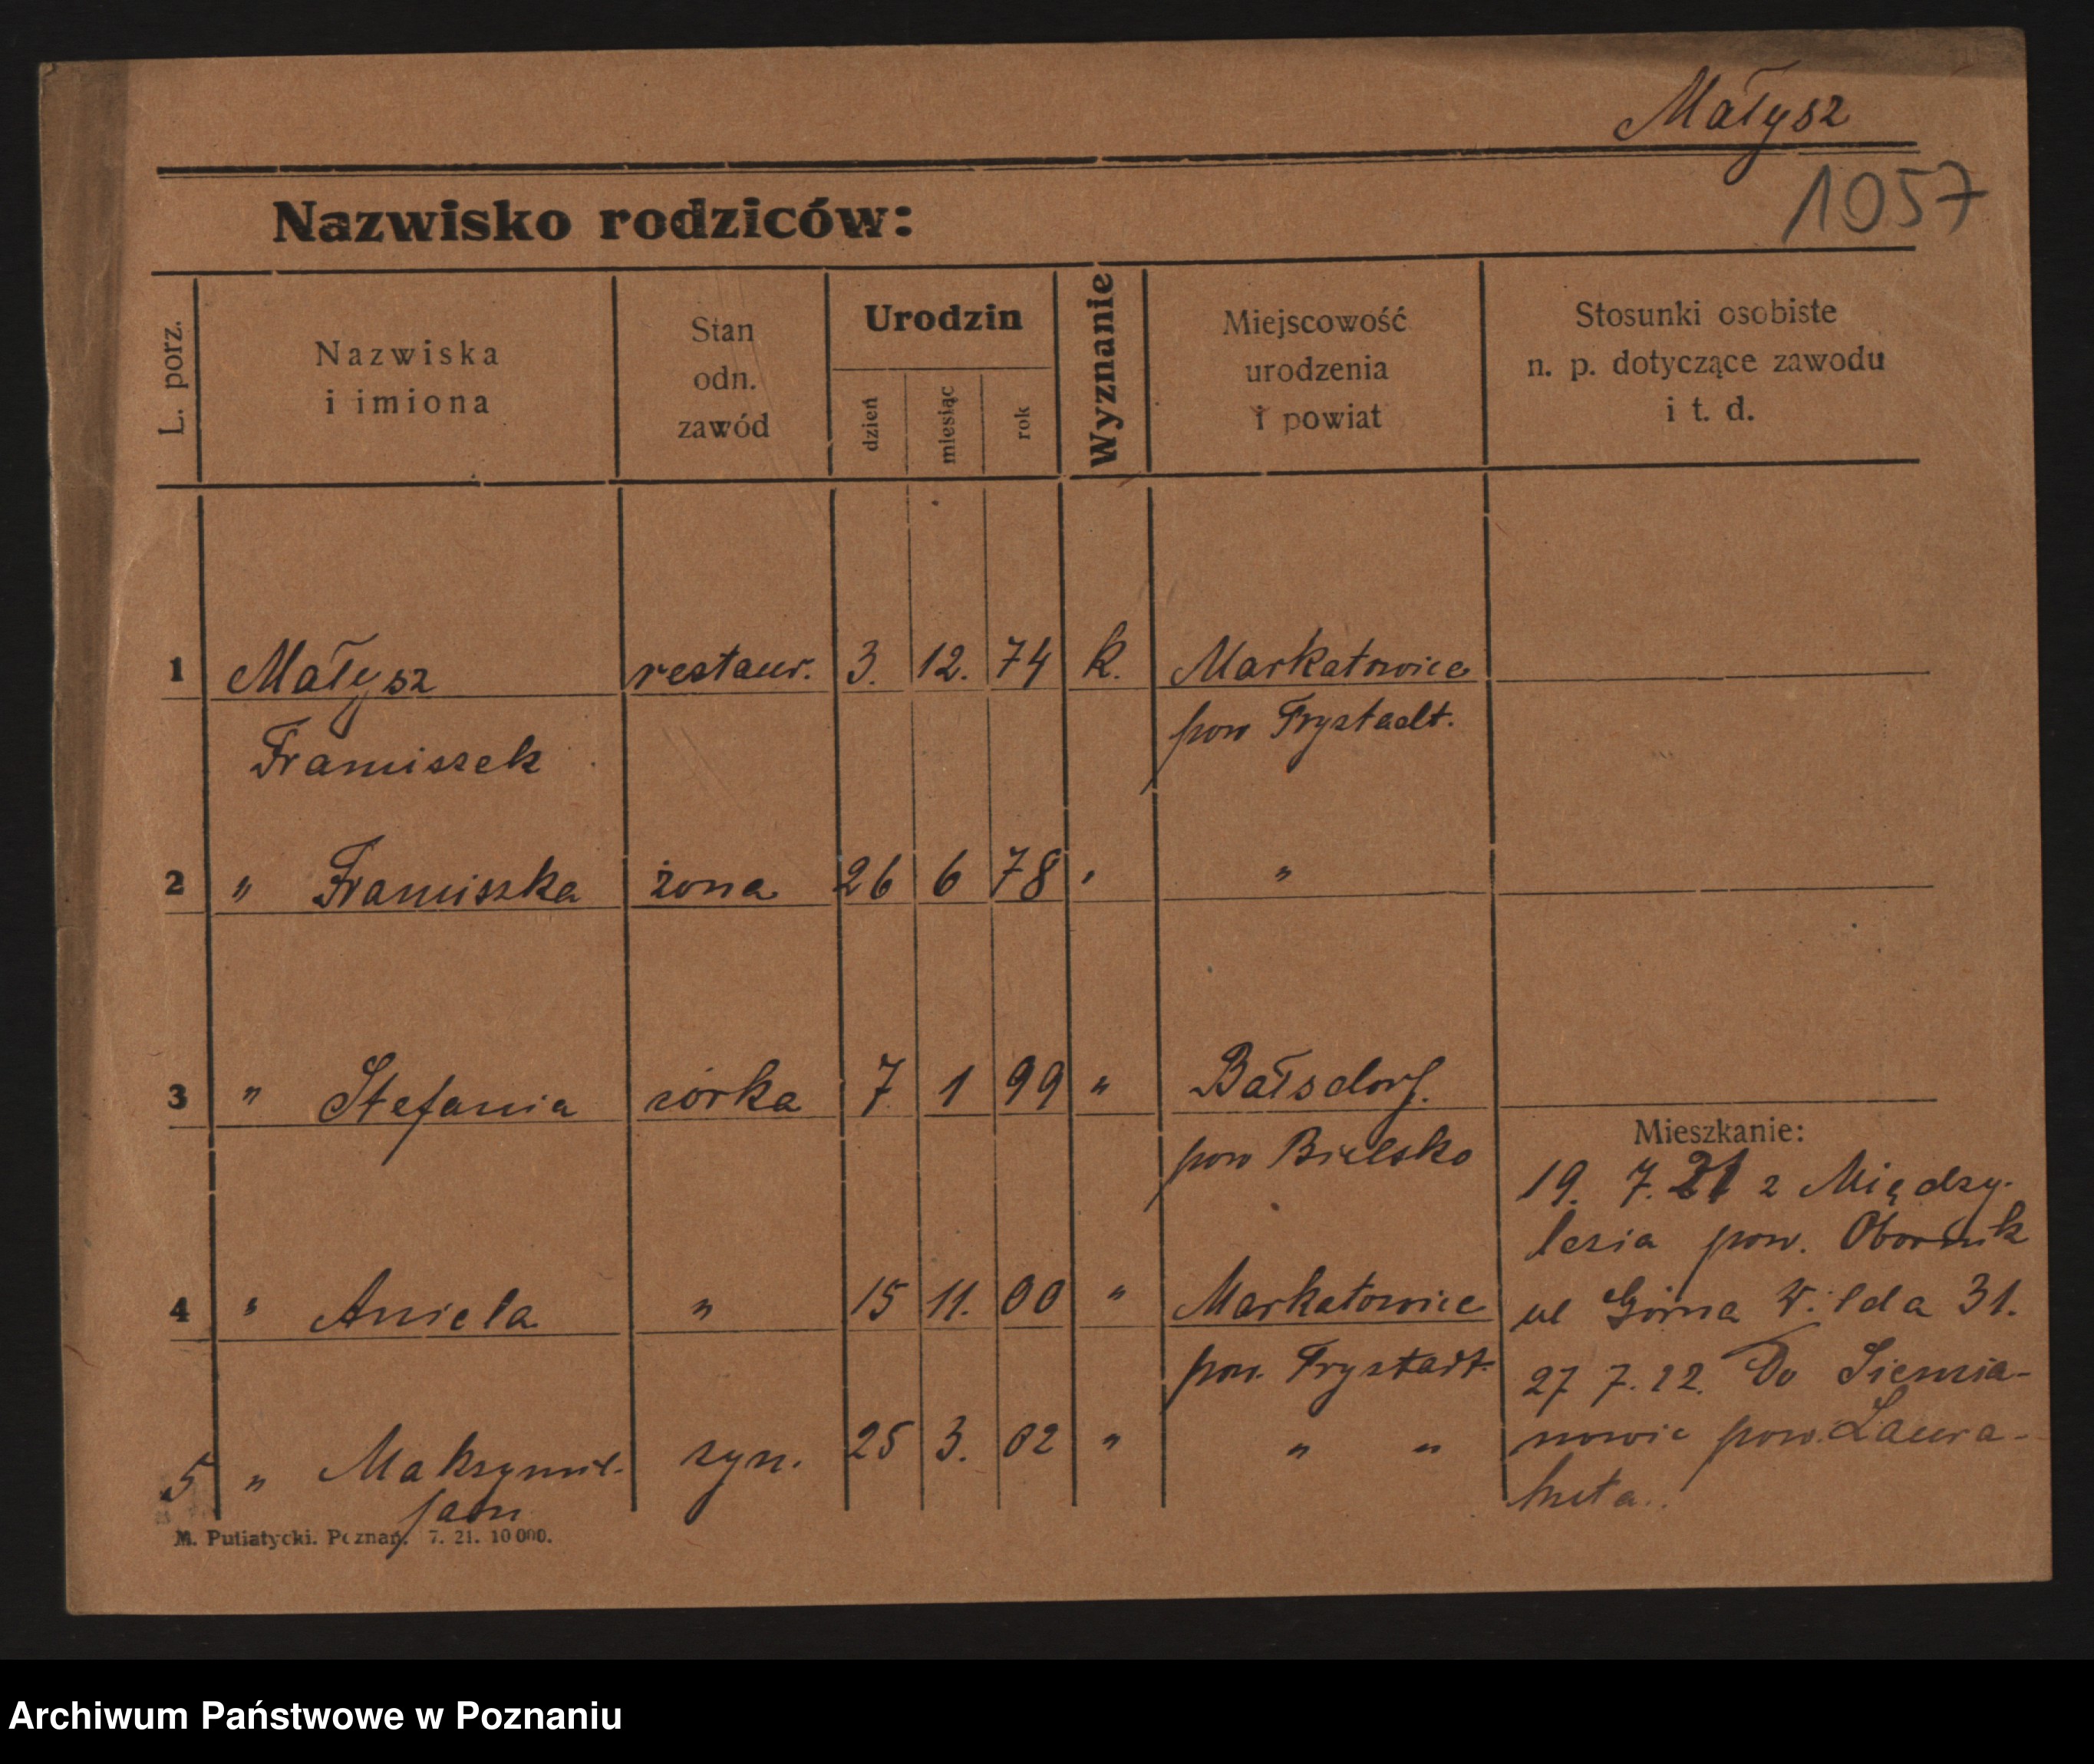 Małysz
1057
Nazwisko rodziców:
L. porz.
Nazwiska
i imiona
Stan
odn.
zawód
Urodzin
dzień
miesiąc
rok
Wyznanie
Miejscowość
urodzenia
i powiat
Stosunki osobiste
n. p. dotyczące zawodu
i t. d.
1 Małysz restaur. 3. 12. 74 k. Markatowice
Franciszek pow Frystadt.
2 " Franciszka żona 26 6 78 " "
3 " Stefania córka 7 1 99 " Bałsdorf.
pow Bielsko
4 " Aniela " 15 11. 00 " Markatowice
pow. Frystadt.
5 " Maksymil- syn. 25 3. 02 " " "
jan
Mieszkanie:
19. 7. 21 z Między-
lesia pow. Obornik
ul Górna Wilda 31.
27 7. 22. Do Siemia-
nowic pow. Laura-
huta.
M. Putiatycki. Poznań. 7. 21. 10 000.
Archiwum Państwowe w Poznaniu